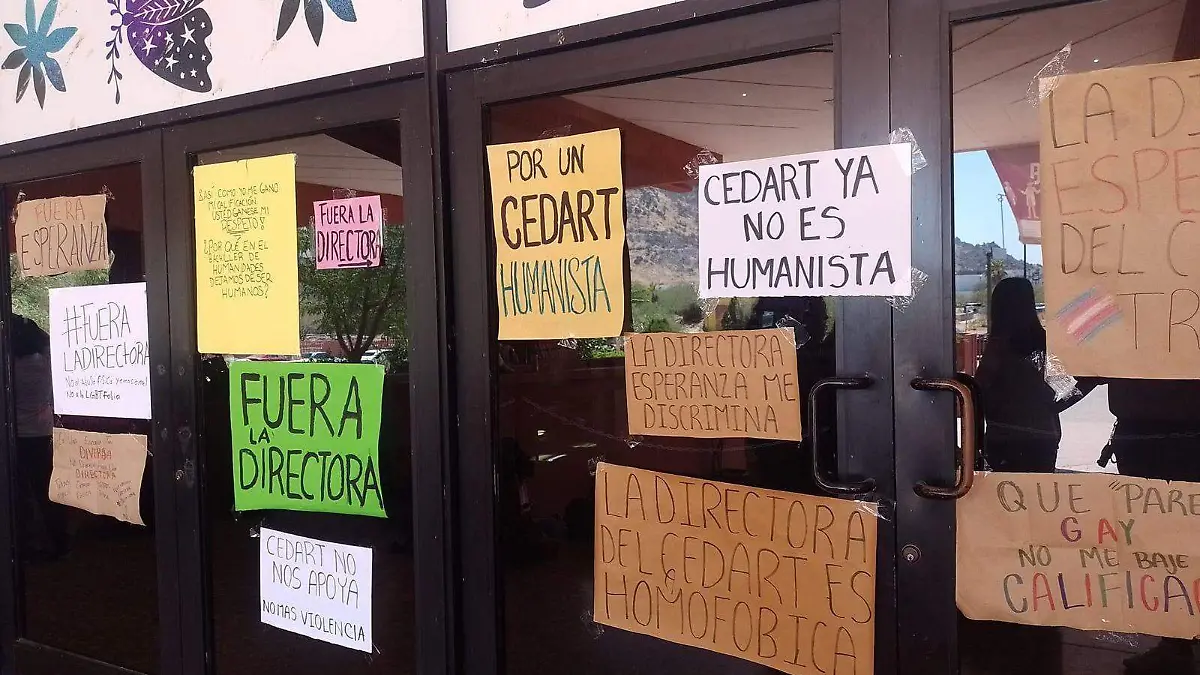 FUERA
ESPERANZA
#FUERA
LADIRECTORA
NO A LA LGBTFOBIA
DIVERSA
DIRECTORA
ASÍ COMO YO ME GANO
MI CALIFICACIÓN
USTED GANESE MI
RESPETO!
¿POR QUÉ EN EL
BACILLER DE
HUMANIDADES
DEJAMOS DE SER
HUMANOS?
FUERA LA
DIRECTORA
FUERA
LA
DIRECTORA
CEDART NO
NOS APOYA
NO MAS VIOLENCIA
POR UN
CEDART
HUMANISTA
CEDART YA
NO ES
HUMANISTA
LA DIRECTORA
ESPERANZA ME
DISCRIMINA
LA DIRECTORA
DEL CEDART ES
HOMOFOBICA
LA DI
ESPE
DEL C
TR
QUE "PARE
GAY
NO ME BAJE
CALIFICA